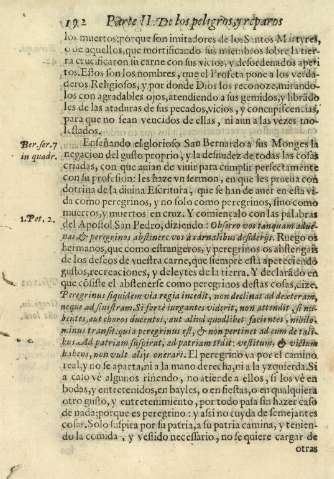 192 Parte II. De los peligros, y reparos
los muertos; porque son imitadores de los Santos Martyres,
o de aquellos, que mortificando sus miembros sobre la tier-
ra crucificaron su carne con sus vicios, y desordenados apeti
tos. Estos son los nombres, que el Profeta pone a los verda-
deros Religiosos, y por donde Dios los reconoze, mirando-
los con agradables ojos, atendiendo a sus gemidos, y librãdo
les de las ataduras de sus pecados, vicios, y concupiscencias,
para que no sean vencidos de ellas, ni aun a las vezes mo-
lestados.
Ber. ser. 7
in quadr.
Enseñando el glorioso San Bernardo a sus Monges la
negacion del gusto proprio, y la desnudez de todas las cosas
criadas, con que auian de viuir para cumplir perfectamente
con su profession: les haze vn sermon, en que les prueua con
dotrina de la diuina Escritura, que se han de auer en esta vi-
da como peregrinos, y no solo como peregrinos, sino como
muertos, y muertos en cruz. Y comiençalo con las palabras
1. Pet. 2.
del Apostol San Pedro, diziendo: Obsecro vos tanquam adue-
nas & peregrinos abstinere vos à carnalibus desiderijs. Ruego os
hermanos, que como estrangeros, y peregrinos os abstengais
de los deseos de vuestra carne, que siempre està apeteciendo
gustos, recreaciones, y deleytes de la tierra. Y declarãdo en
que cõsiste el abstenerse como peregrinos destas cosas, dize.
Peregrinus siquidem via regia incedit, non declinat ad dexteram,
neque ad sinistram. Si fortè iurgantes viderit, non attendit, si nu-
bentes, aut choros ducentes, aut aliud quodlibet facientes, nihilo-
minus transit: quia peregrinus est, & non pertinet ad eum de tali-
bus. Ad patriam suspirat, ad patriam tendit: vestitum, & victum
habens, non vult alijs onerari. El peregrino va por el camino
real, y no se aparta, ni a la mano derecha, ni a la yzquierda. Si
a caso vè algunos riñendo, no atiende a ellos, si los vè en
bodas, y entretenidos, en bayles, o en fiestas, o en qualquiera
otro gusto, y entretenimiento, por todo passa sin hazer caso
de nada: porque es peregrino: y assi no cuyda de semejantes
cosas. Solo suspira por su patria, a su patria camina, y tenien-
do la comida, y vestido necessario, no se quiere cargar de
otras